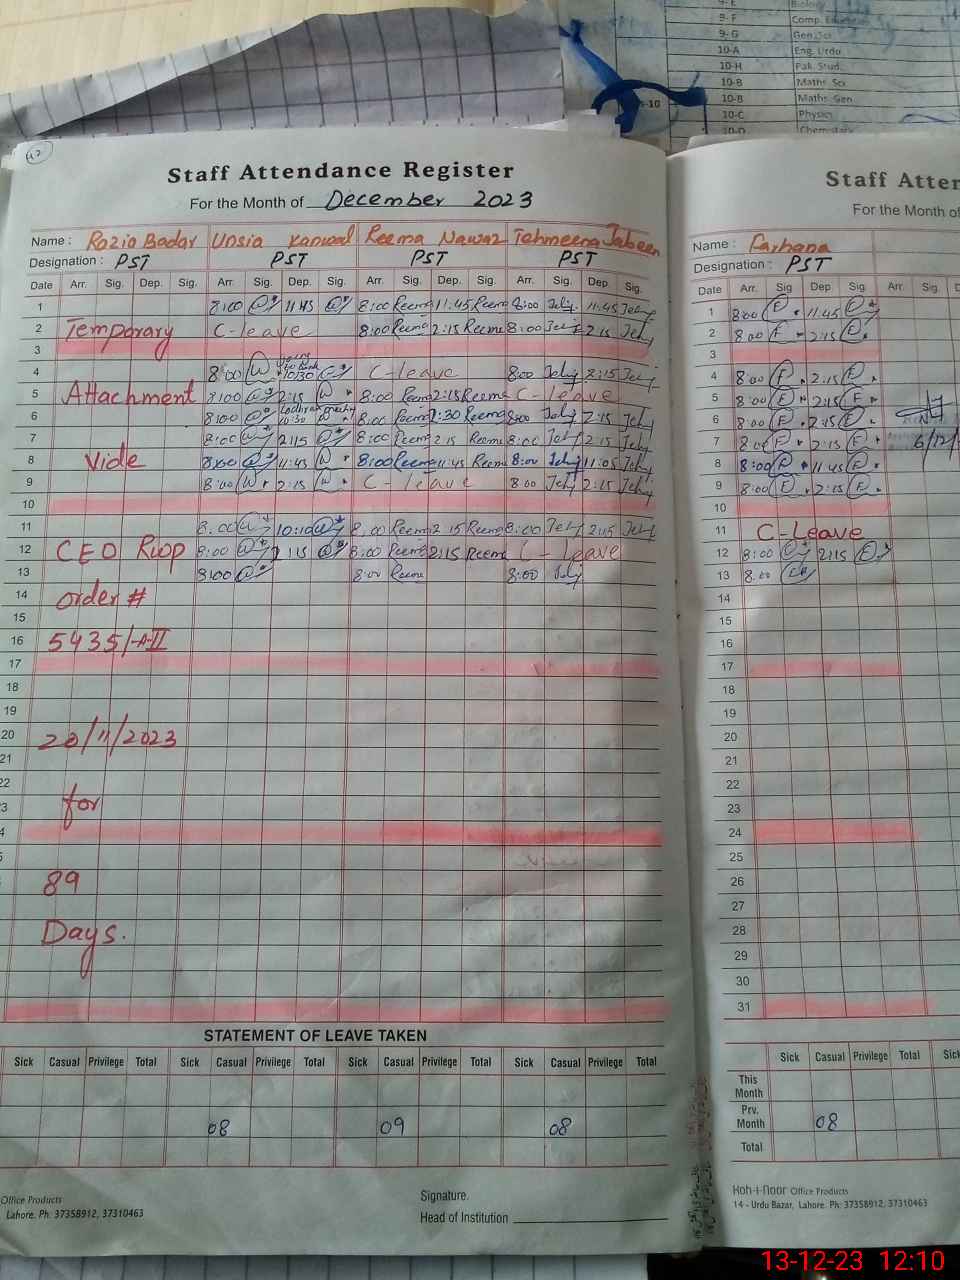 9-E Biology
9-F Comp.
9-G Gen.Sci
10-A Eng. Urdu
10-H Pak. Stud.
10-B Maths Sci
10-B Maths Gen
10-C Physics
10-D Chemistry
Staff Attendance Register
For the Month of December 2023
Name : Razia Badar Unsia Kanwal Reema Nawaz Tehmeena Jabeen
Designation : PST PST PST PST
Date Arr. Sig. Dep. Sig. Arr. Sig. Dep. Sig. Arr. Sig. Dep. Sig. Arr. Sig. Dep. Sig.
1 8:00 11:45 8:00 Reema 11:45 Reema 8:00 11:45
2 Temporary C-leave 8:00 Reema 2:15 Reema 8:00 2:15
3
4 8:00 10:30 C-leave 8:00 2:15
5 Attachment 8:00 2:15 8:00 Reema 2:15 Reema C-leave
6 8:00 10:30 8:00 Reema 2:30 Reema 8:00 2:15
7 8:00 2:15 8:00 Reema 2:15 Reema 8:00 2:15
8 Vide 8:00 11:45 8:00 Reema 11:45 Reema 8:00 11:05
9 8:00 2:15 C-leave 8:00 2:15
10
11 8:00 10:10 8:00 Reema 2:15 Reema 8:00 2:15
12 CEO 8:00 2:15 8:00 Reema 2:15 Reema C-leave
13 8:00 8:00 Reema 8:00
14 order #
15
16 5435/A-II
17
18
19
20 20/11/2023
21
22
3 for
4
89
Days.
STATEMENT OF LEAVE TAKEN
Sick Casual Privilege Total Sick Casual Privilege Total Sick Casual Privilege Total Sick Casual Privilege Total
08 09 08
Office Products
Lahore. Ph: 37358912, 37310463
Signature.
Head of Institution
Staff Atter
For the Month of
Name : Farhana
Designation : PST
Date Arr. Sig. Dep Sig. Arr. Sig. D
1 8:00 11:45
2 8:00 2:15
3
4 8:00 2:15
5 8:00 2:15
6 8:00 2:15
7 8:00 2:15 6/12/
8 8:00 11:45
9 8:00 2:15
10
11 C-Leave
12 8:00 2:15
13 8:00
14
15
16
17
18
19
20
21
22
23
24
25
26
27
28
29
30
31
Sick Casual Privilege Total Sick
This Month
Prv. Month 08
Total
Koh-i-noor Office Products
14 - Urdu Bazar, Lahore. Ph: 37358912, 37310463
13-12-23 12:10